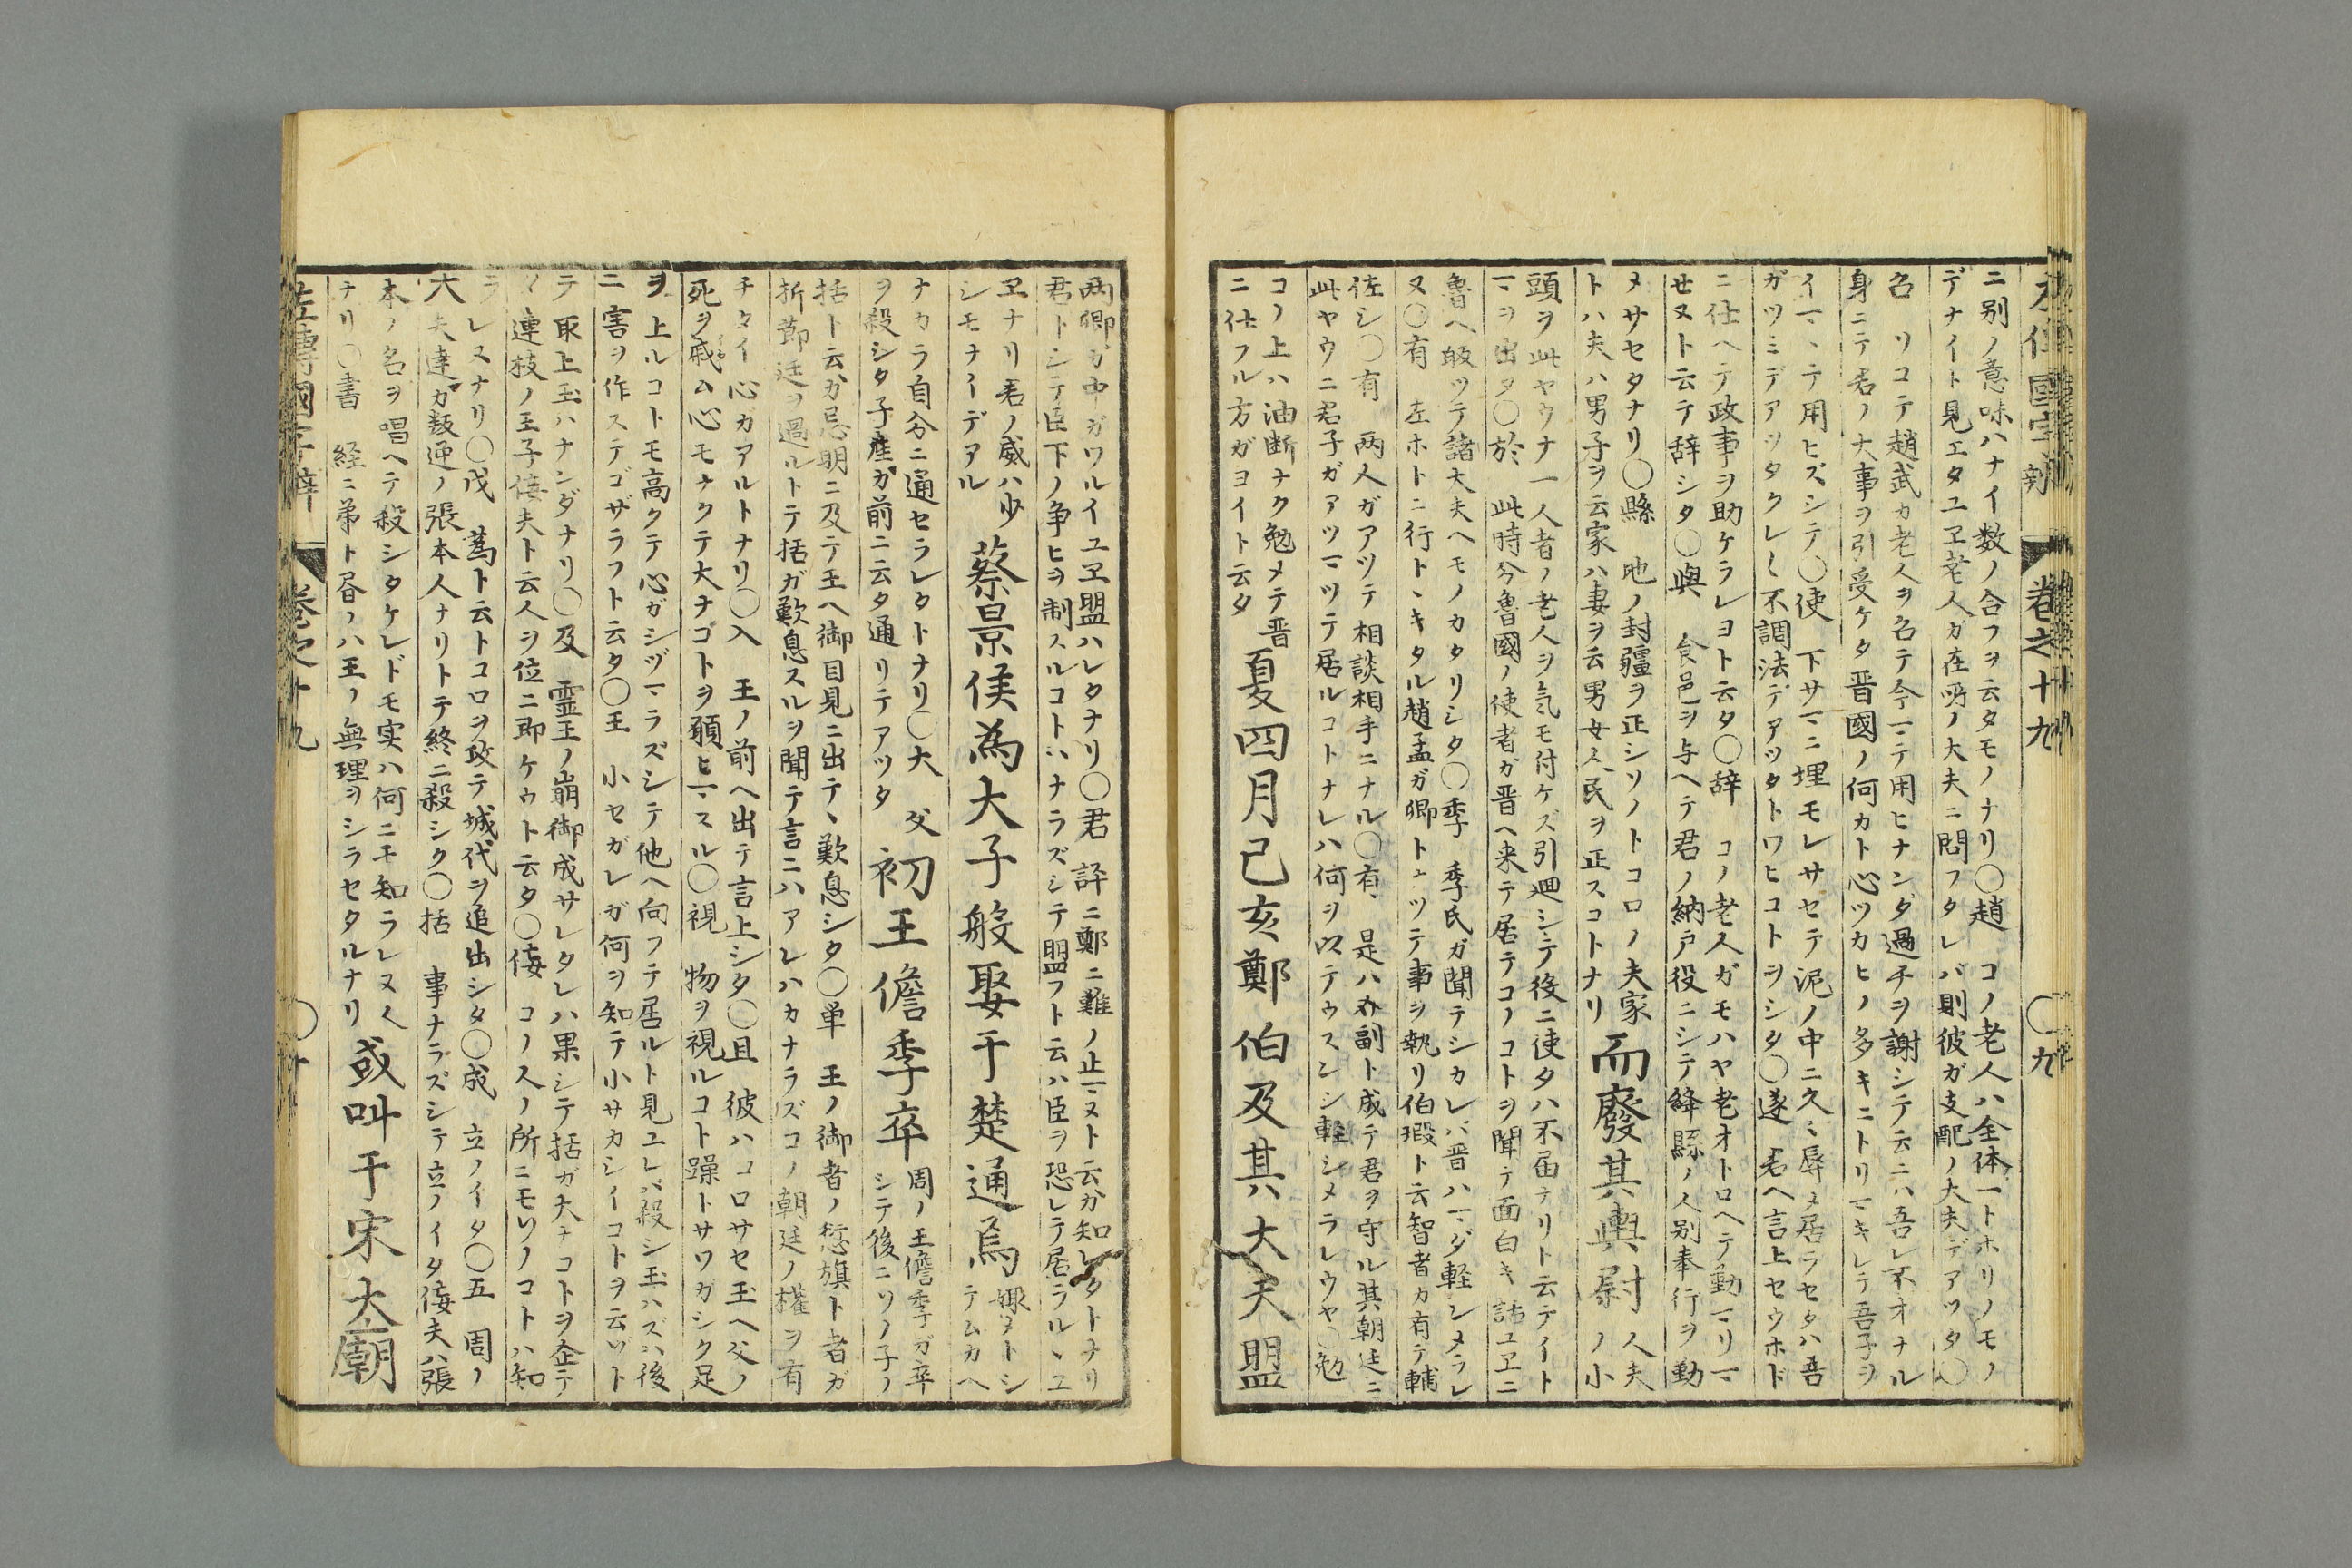 左傳國字辯 卷之十九 〇九
ニ別ノ意味ハナイ数ノ合フヲ云タモノナリ〇趙 コノ老人ハ全体一トホリノモノ
デナイト見エタユヱ老人カ在所ノ大夫ニ問フタレバ則彼ガ支配ノ大夫デアツタ〇
召 リコテ趙武カ老人ヲ召テ今マテ用ヒナンダ過チヲ謝シテ云ニハ吾レ不オナル
身ニテ君ノ大事ヲ引受ケタ晋國ノ何カト心ツカヒノ多キニトリマキレテ吾子ヲ
イマヽテ用ヒズシテ〇使 下サマニ埋モレサセテ泥ノ中ニ久ミ辱メ居ラセタハ吾
ガツミデアツタクレ〱不調法デアツタトワヒコトヲシタ〇遂 君ヘ言上セウホド
ニ仕ヘテ政事ヲ助ケラレヨト云タ〇辞 コノ老人ガモハヤ老オトロヘテ勤マリマ
せヌト云テ辞シタ〇與 食邑ヲ与ヘテ君ノ納戸役ニシテ絳縣ノ人別奉行ヲ勤
メサセタナリ〇縣 地ノ封疆ヲ正シソノトコロノ夫家
トハ夫ハ男子ヲ云家ハ妻ヲ云男女人民ヲ正スコトナリ
而廢其輿尉
人夫
ノ小
頭ヲ此ヤウナ一人者ノ老人ヲ気モ付ケズ引廻シテ後ニ使タハ不届ナリト云テイト
マヲ出タ〇於 此時分魯國ノ使者ガ晋ヘ来テ居テコノコトヲ聞テ面白キ話ユヱニ
魯ヘ皈ツテ諸大夫ヘモノカタリシタ〇季 季氏ガ聞テシカレバ晋ハマダ軽シメラレ
ヌ〇有 左ホトニ行トヽキタル趙孟ガ卿トナツテ事ヲ執リ伯瑕ト云智者カ有テ輔
佐シ〇有 両人ガアツテ相談相手ニナル〇有 是ハ々副ト成テ君ヲ守ル其朝廷ニ
此ヤウニ君子ガアツマツテ居ルコトナレハ何ヲ以テウスンシ軽シメラレウヤ〇勉
コノ上ハ油断ナク勉メテ晋
ニ仕フル方ガヨイト云タ
夏四月己亥鄭伯及其大夫盟
両卿ガ中ガワルイユヱ盟ハレタナリ〇君 評ニ鄭ニ難ノ止マヌト云分知レタトナリ
君トシテ臣下ノ争ヒヲ制スルコトハナラズシテ盟フト云ハ臣ヲ恐レテ居ラルヽユ
ヱナリ君ノ威ハ少
シモナイデアル
蔡景侯為大子般娶于楚通焉
嫁メトシ
テムカヘ
ナカラ自分ニ通セラレタトナリ〇大 父
ヲ殺シタ子産ガ前ニ云タ通リテアツタ
初王儋季卒
周ノ王儋季ガ卒
シテ後ニソノ子ノ
括ト云ガ忌明ニ及テ王ヘ御目見ニ出テヽ歎息シタ〇単 王ノ御者ノ愆旗ト者ガ
折節廷ヲ過ルトテ括ガ歎息スルヲ聞テ言ニハアレハカナラズコノ朝廷ノ權ヲ有
チタイ心カアルトナリ〇入 王ノ前ヘ出テ言上シタ〇且 彼ハコロサセ玉ヘ父ノ
死ヲ戚ム心モナクテ大ナゴトヲ願ヒマスル〇視 物ヲ視ルコト躁トサワガシク足
ヲ上ルコトモ高クテ心ガシヅマラズシテ他ヘ向フテ居ルト見ユレバ殺シ玉ハズハ後
ニ害ヲ作ステゴザラフト云タ〇王 小セガレガ何ヲ知テ小サカシイコトヲ云ツト
テ取上玉ハナンダナリ〇及 霊王ノ崩御成サレタレハ果シテ括ガ大ナコトヲ企テ
ノ連枝ノ王子佞夫ト云人ヲ位ニ即ケウト云タ〇佞 コノ人ノ所ニモソノコトハ知
ラレヌナリ〇戊 蒍ト云トコロヲ攻テ城代ヲ追出シタ〇成 立ノイタ〇五 周ノ
大夫達ガ叛逆ノ張本人ナリトテ終ニ殺シク〇括 事ナラズシテ立ノイタ佞夫ハ張
本ノ名ヲ唱ヘテ殺シタケレドモ実ハ何ニモ知ラレヌ人
ナリ〇書 経ニ弟ト昏フハ王ノ無理ヲシラセタルナリ
或叫于宋大廟
左傳國字辯 卷之十九 〇十